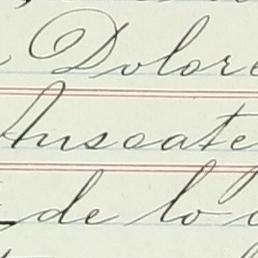 Dolore
Ansoate
de lo